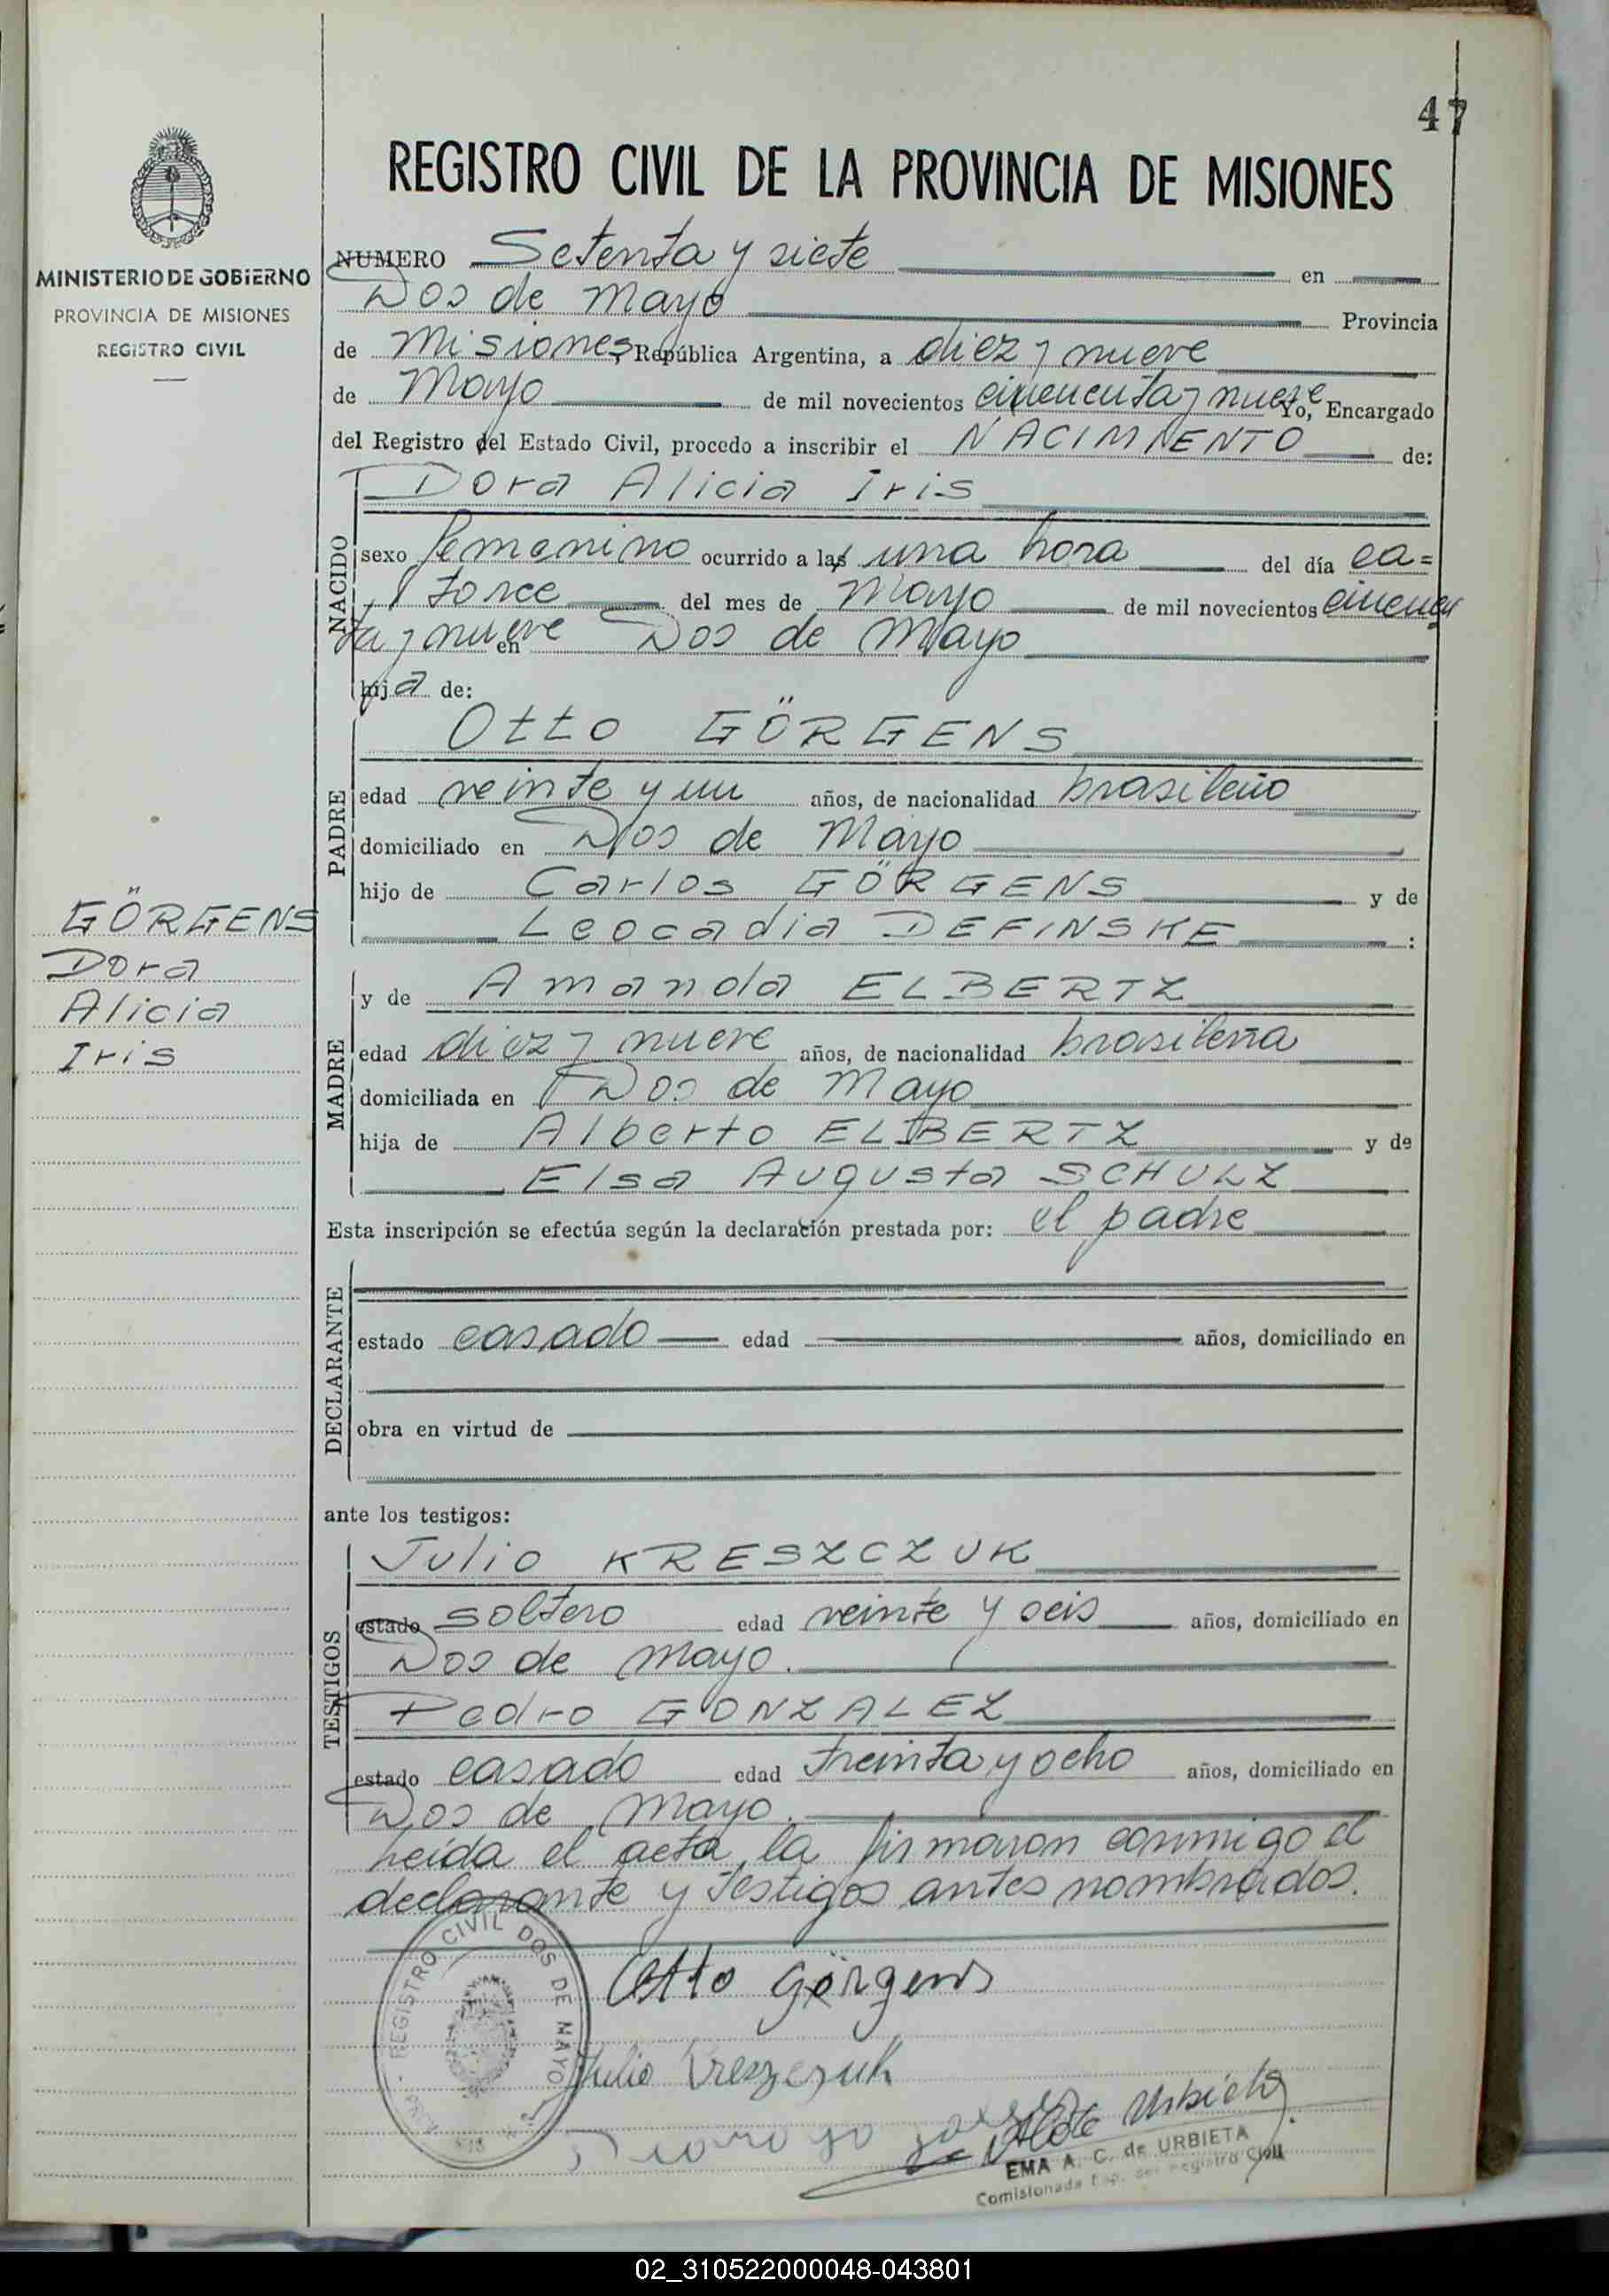 47
REGISTRO CIVIL DE LA PROVINCIA DE MISIONES
MINISTERIO DE GOBIERNO
PROVINCIA DE MISIONES
REGISTRO CIVIL
NUMERO Setenta y siete en
Dos de Mayo Provincia
de Misiones, República Argentina, a diez y nueve
de Mayo de mil novecientos cincuenta y nueve Yo, Encargado
del Registro del Estado Civil, procedo a inscribir el NACIMIENTO de:
Dora Alicia Iris
NACIDO
sexo femenino ocurrido a las una hora del día ca=
torce del mes de Mayo de mil novecientos cincuen
ta y nueve en Dos de Mayo
hija de:
Otto GÖRGENS
PADRE
edad veinte y un años, de nacionalidad brasileño
domiciliado en Dos de Mayo
hijo de Carlos GÖRGENS y de
Leocadia DEFINSKE :
GÖRGENS
Dora
Alicia
Iris
y de Amanda ELBERTZ
MADRE
edad diez y nueve años, de nacionalidad brasileña
domiciliada en Dos de Mayo
hija de Alberto ELBERTZ y de
Elsa Augusta SCHULZ
Esta inscripción se efectúa según la declaración prestada por: el padre
DECLARANTE
estado casado edad años, domiciliado en
obra en virtud de
ante los testigos:
Julio KRESZCZUK
TESTIGOS
estado soltero edad veinte y seis años, domiciliado en
Dos de Mayo.
Pedro GONZALEZ
estado casado edad treinta y ocho años, domiciliado en
Dos de Mayo.
Leída el acta, la firmaron conmigo el
declarante y testigos antes nombrados.
REGISTRO CIVIL DOS DE MAYO
Otto Görgens
Julio Kreszczuk
Urbieta
EMA A. C. de URBIETA
Comisionada Esp. del Registro Civil
02_310522000048-043801